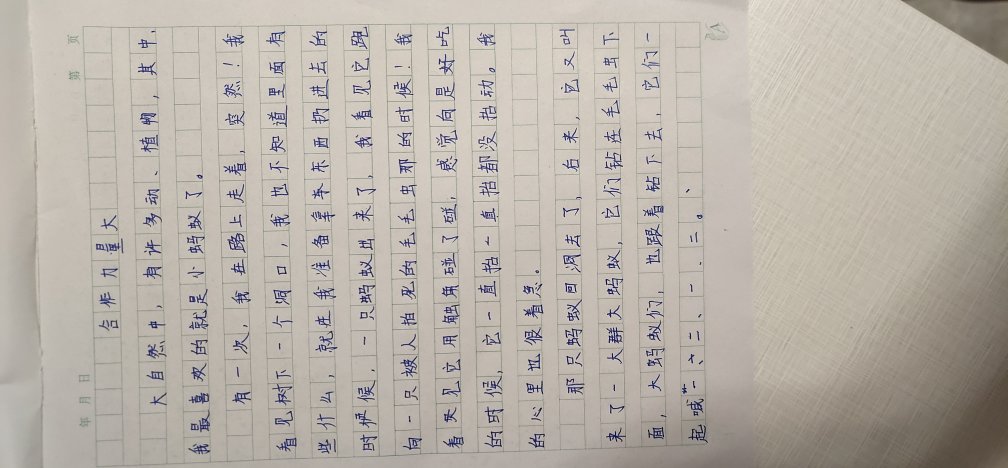 第 页
年 月 日
合作力量大
大自然中，有许多动、植物，其中，
我最喜欢的就是小蚂蚁了。
有一次，我在路上走着，突然！我
看见树下一个洞口，我也不知道里面有
些什么，就在我准备拿东西扔进去的
时候，一只蚂蚁出来了，我看见它跑
向一只被人拍死的毛毛虫那的时候！我
看见它用触角碰了碰，感觉向是好吃
的时候，它一直抬一直抬都没抬动。我
的心里也很着急。
那只蚂蚁回洞去了，后来，它又叫
来了一大群大蚂蚁，它们钻在毛毛虫下
面，大蚂蚁们，也跟着钻下去，它们一
起喊“一、二、一．二。、